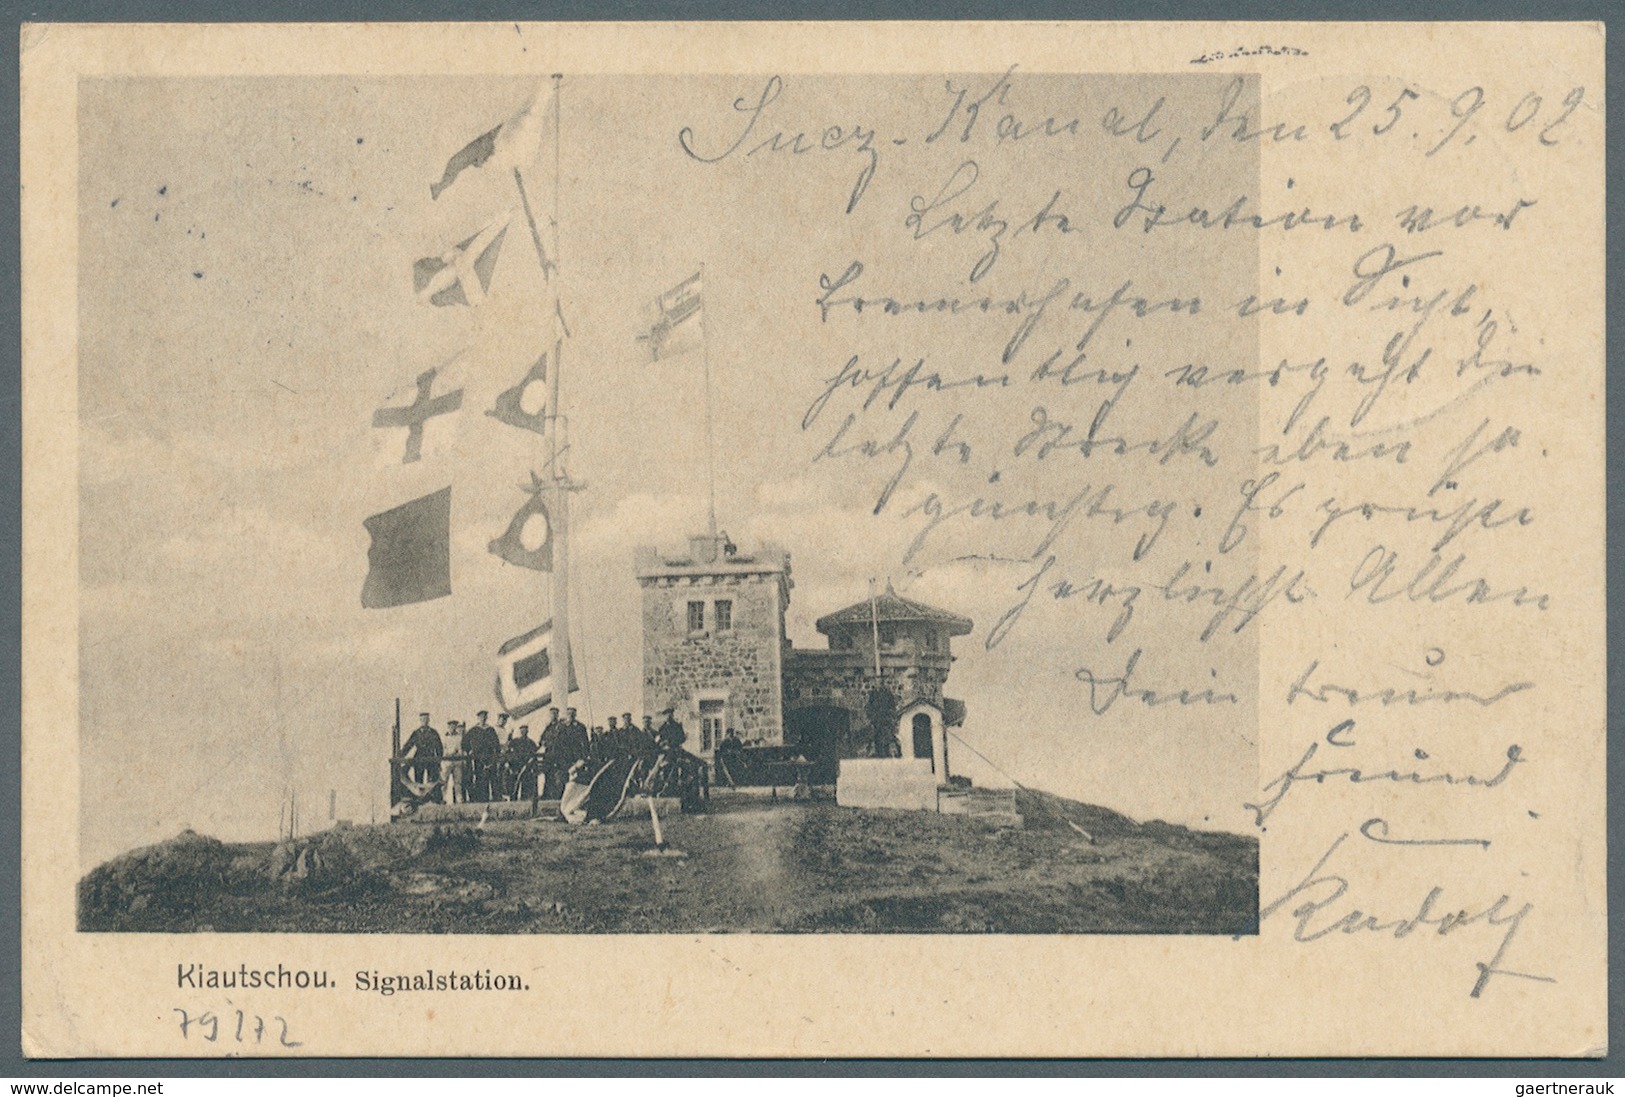 Suez-Kanal, den 25.9.02
Letzte Station vor
Bremerhafen in Sicht,
hoffentlich vergeht die
letzte Strecke eben so
günstig. Es grüßt
herzlichst Allen
Dein treuer
Freund
Rudolf
Kiautschou. Signalstation.
79172
www.delcampe.net
gaertnerauk